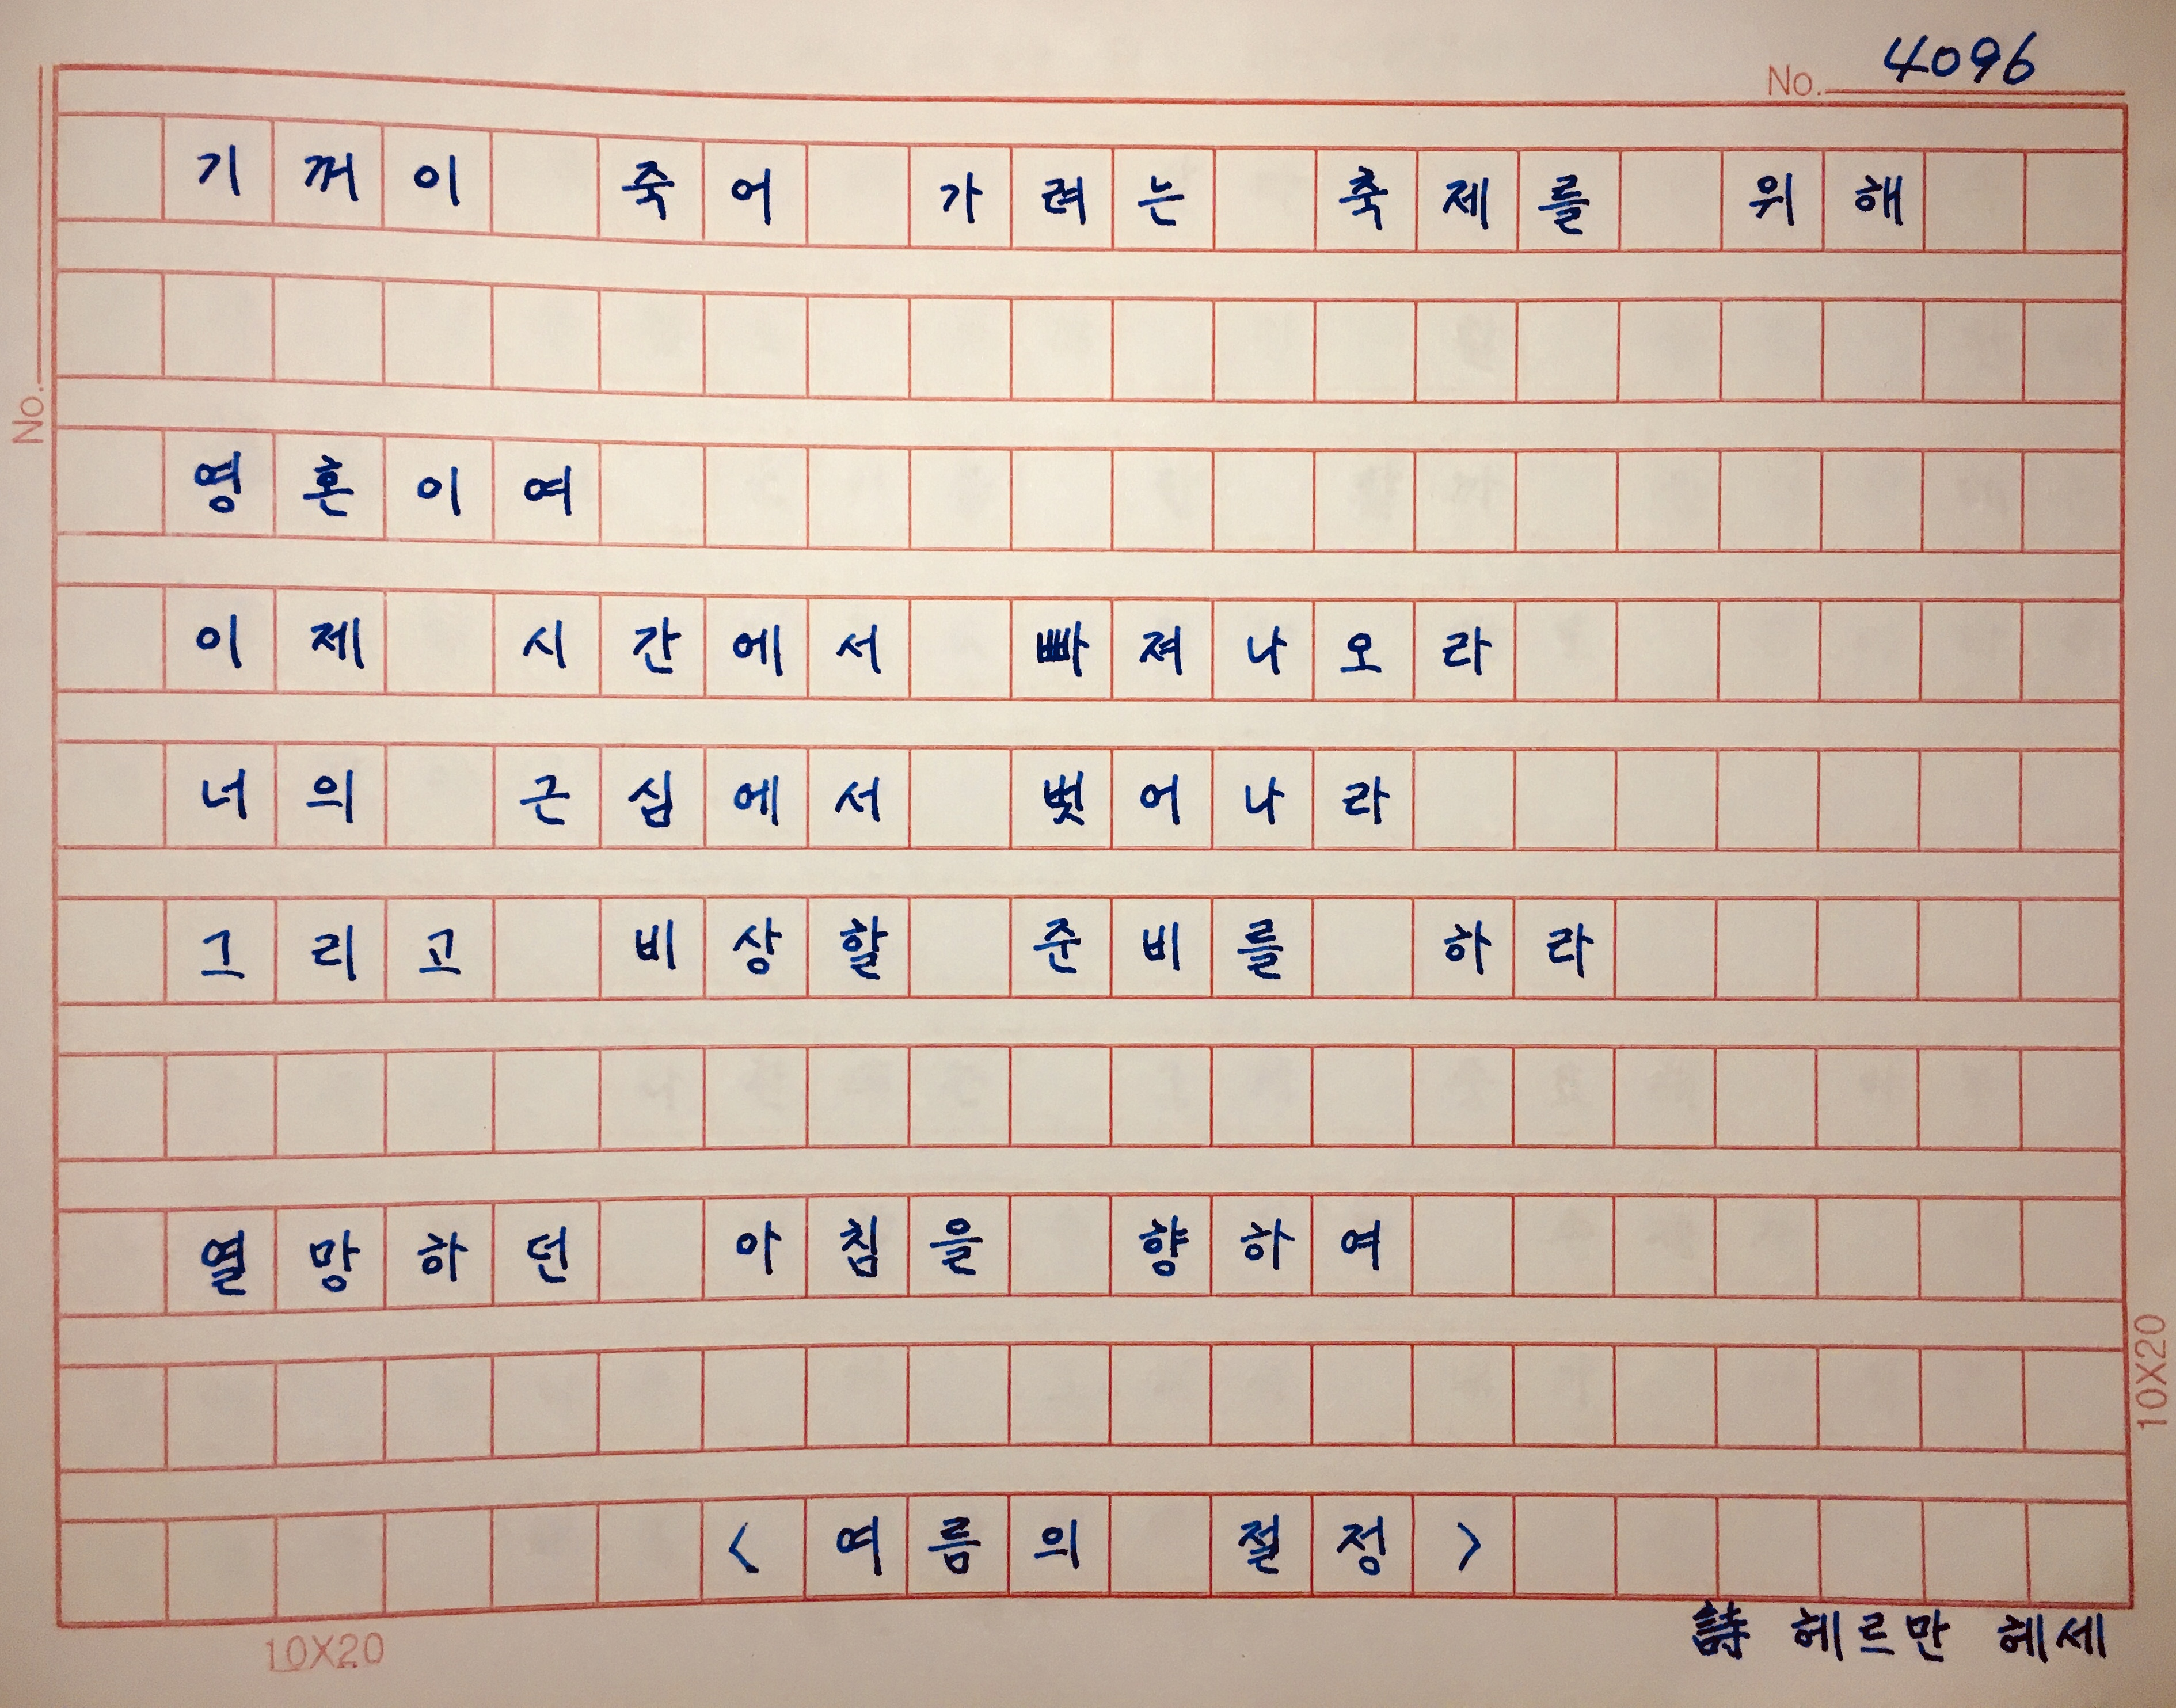 No. 4096
기꺼이 죽어 가려는 축제를 위해
No.
영혼이여
이제 시간에서 빠져나오라
너의 근심에서 벗어나라
그리고 비상할 준비를 하라
열망하던 아침을 향하여
<여름의 절정>
10X20
詩 헤르만 헤세
10X20